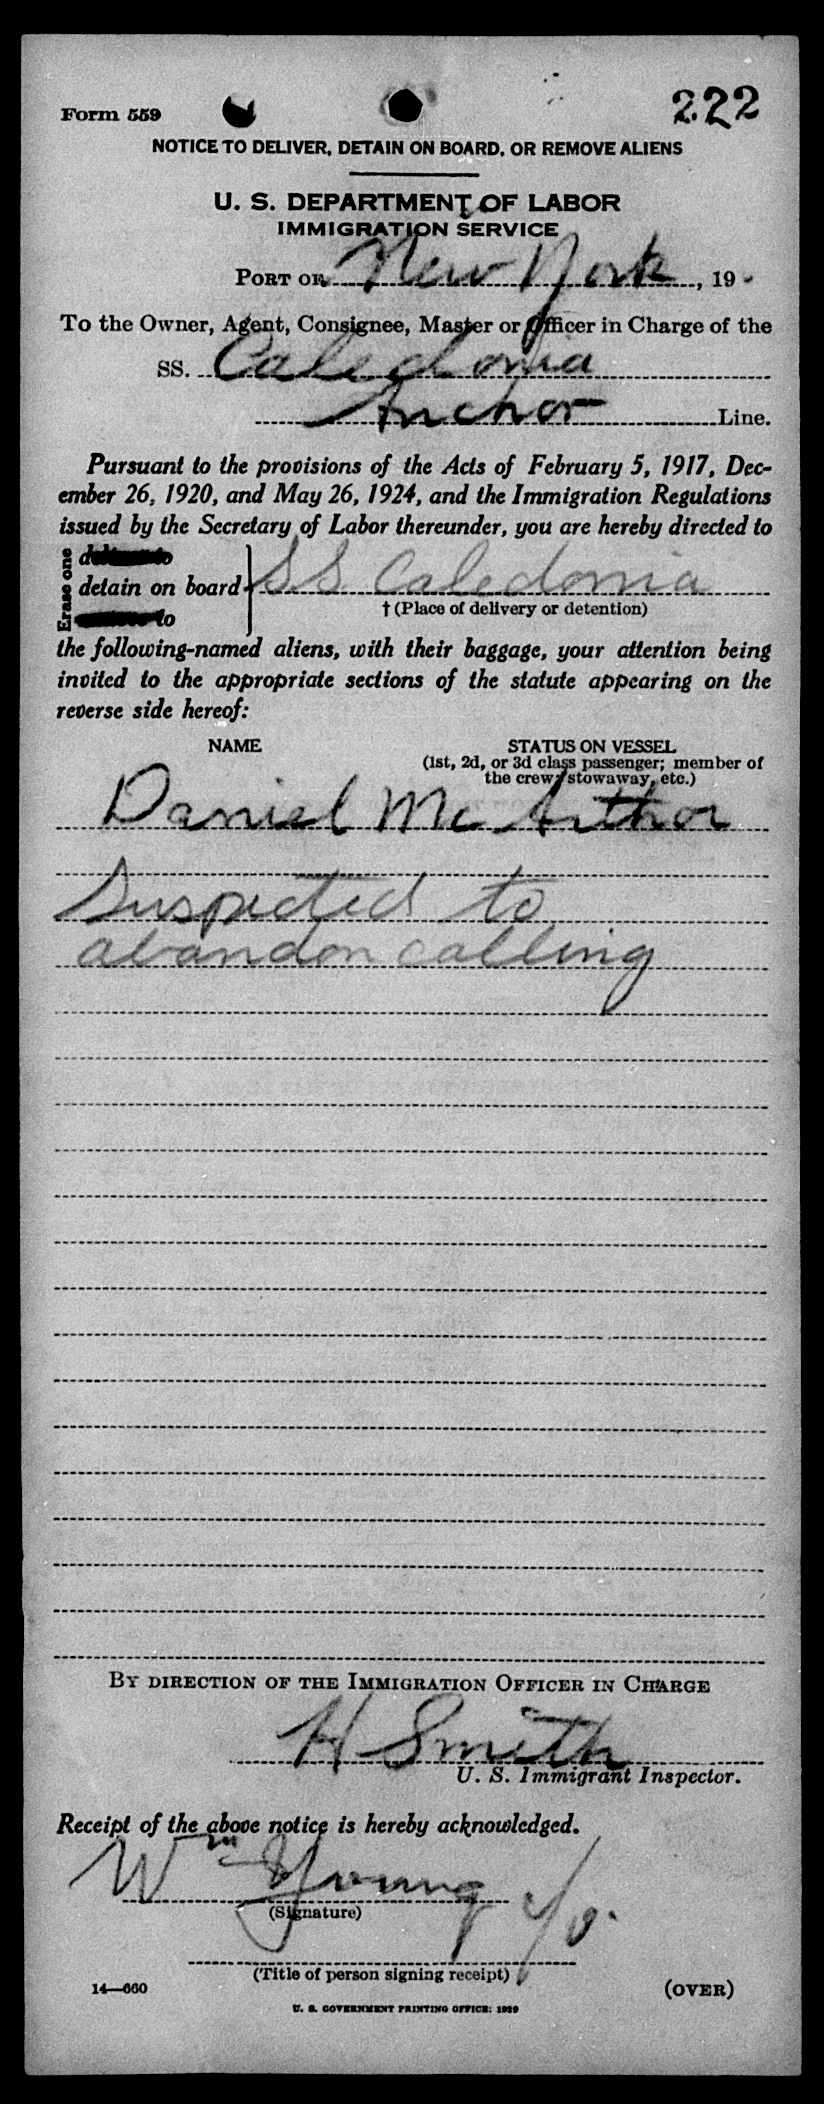 Form 559
222
NOTICE TO DELIVER, DETAIN ON BOARD, OR REMOVE ALIENS
U. S. DEPARTMENT OF LABOR
IMMIGRATION SERVICE
PORT OF New York, 19
To the Owner, Agent, Consignee, Master or Officer in Charge of the
SS. Caledonia
Anchor Line.
Pursuant to the provisions of the Acts of February 5, 1917, Dec-
ember 26, 1920, and May 26, 1924, and the Immigration Regulations
issued by the Secretary of Labor thereunder, you are hereby directed to
Erase one
detain on board SS. Caledonia
† (Place of delivery or detention)
to
the following-named aliens, with their baggage, your attention being
invited to the appropriate sections of the statute appearing on the
reverse side hereof:
NAME STATUS ON VESSEL
(1st, 2d, or 3d class passenger; member of
the crew; stowaway, etc.)
Daniel Mc Arthor
Suspected to
abandon calling
BY DIRECTION OF THE IMMIGRATION OFFICER IN CHARGE
H Smith
U. S. Immigrant Inspector.
Receipt of the above notice is hereby acknowledged.
Wm Young
(Signature)
(Title of person signing receipt)
14—660 (OVER)
U. S. GOVERNMENT PRINTING OFFICE: 1929